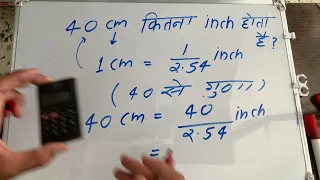 40 cm कितना inch होता
है?
1 cm = 1/2.54 inch
(40 से गुणा)
40 cm = 40/2.54 inch
=